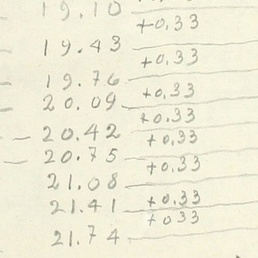 19.10 +0.33
19.43 +0.33
19.76 +0.33
20.09 +0.33
20.42 +0.33
20.75 +0.33
21.08
21.41 +0.33
+0.33
21.74